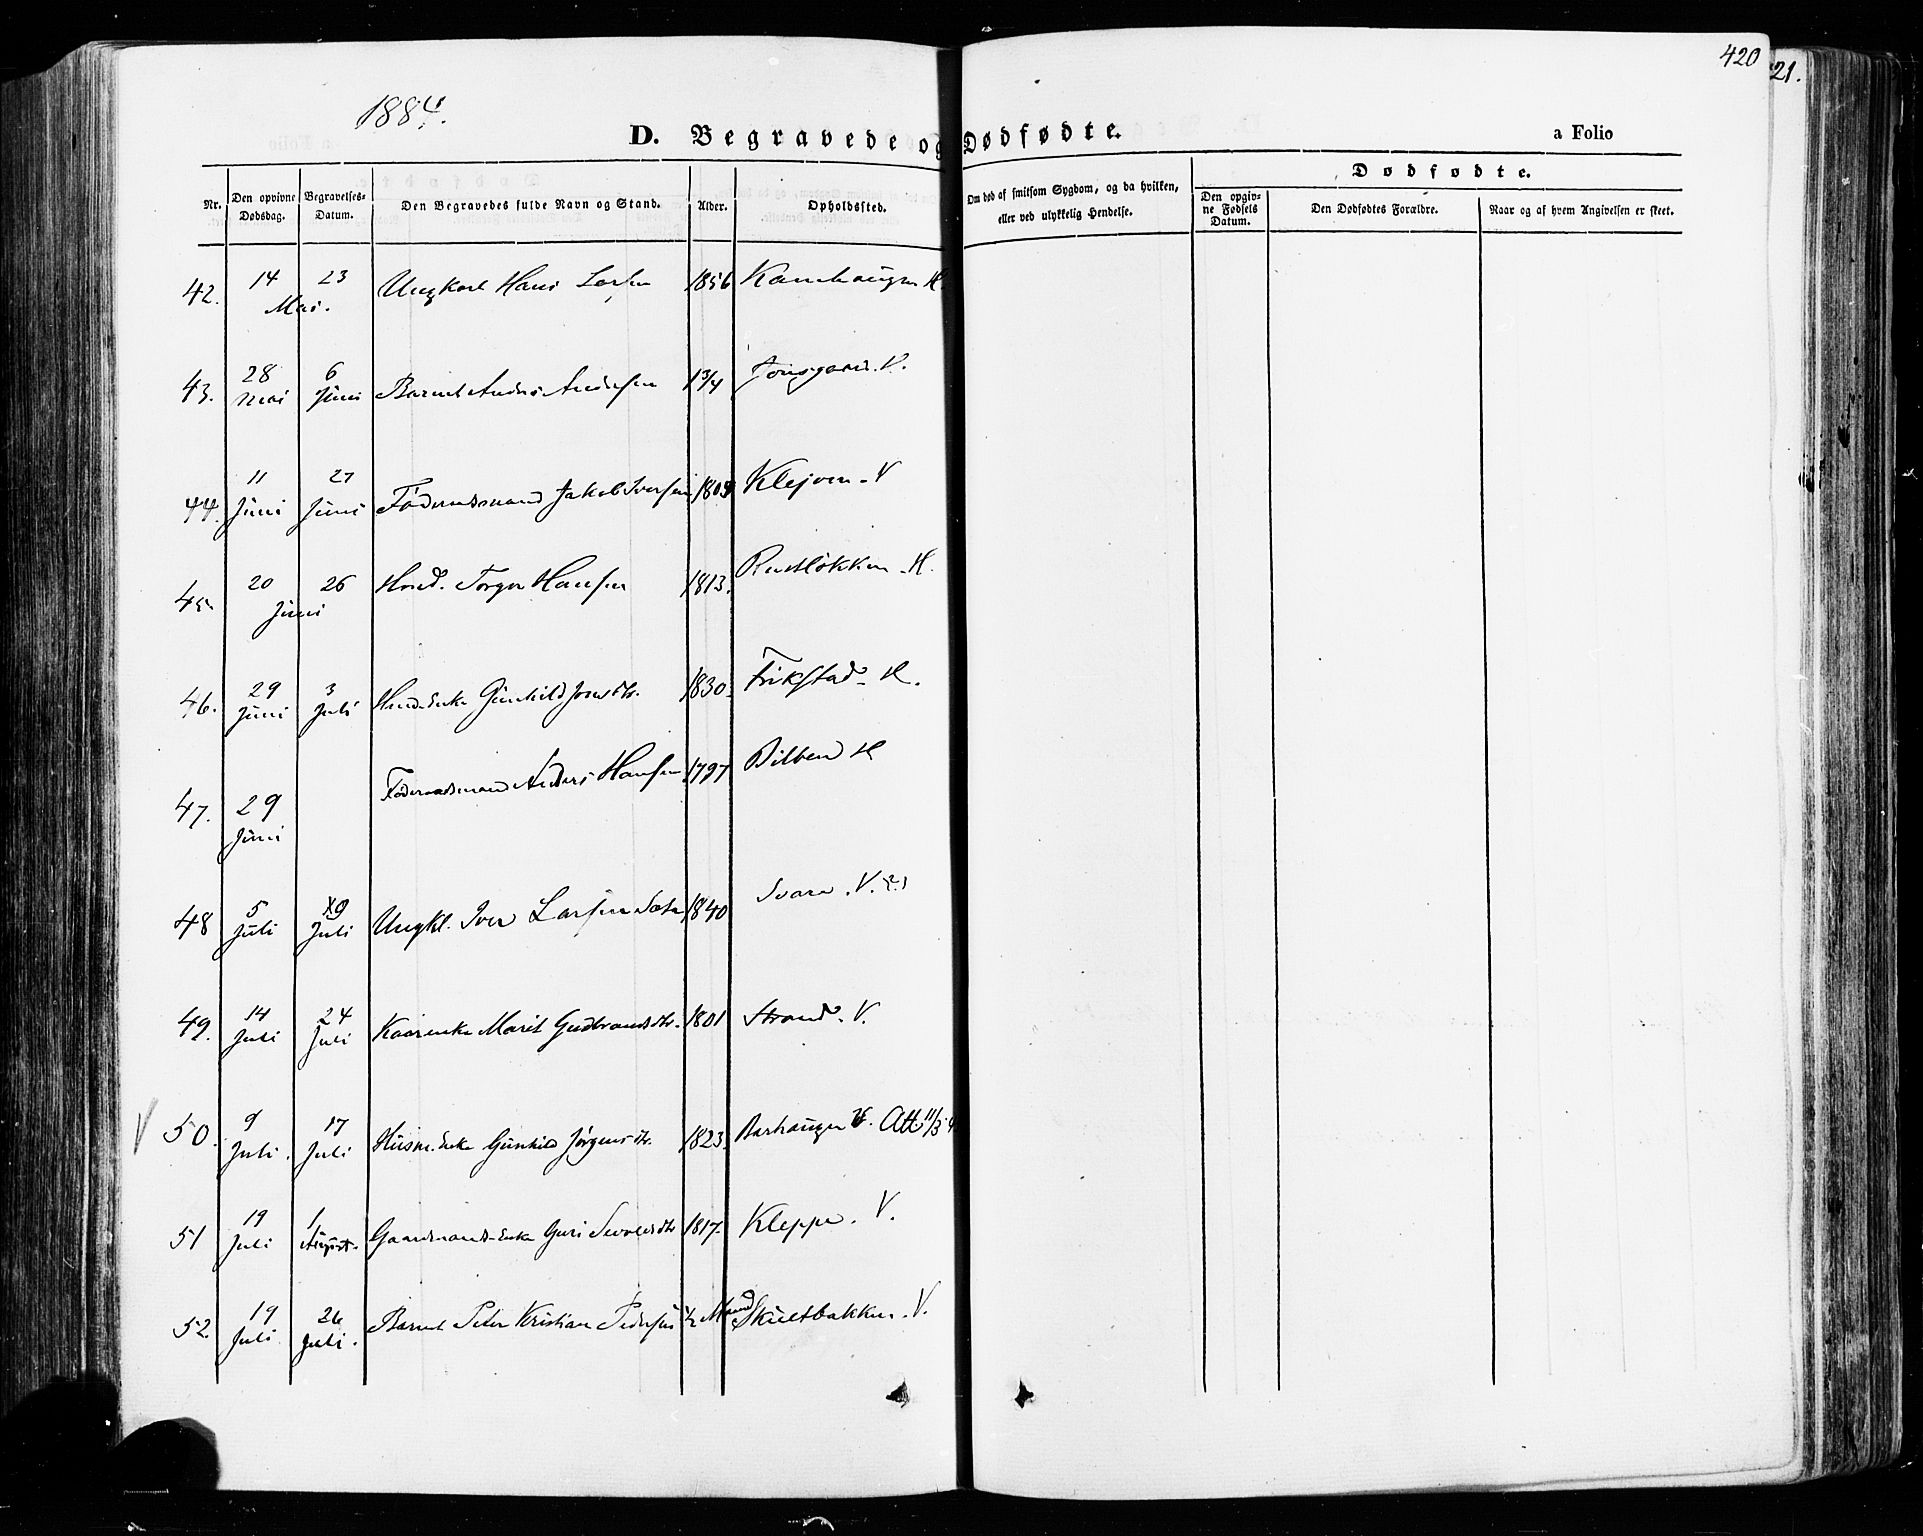 420
21.
1884.
D. Begravede og Dødfødte.
a Folio
Nr.
Den opgivne Dødsdag.
Begravelses-Datum.
Den Begravedes fulde Navn og Stand.
Alder.
Opholdssted.
Om død af smitsom Sygdom, og da hvilken, eller ved ulykkelig Hendelse.
Dødfødte.
Den opgivne Fødsels Datum.
Den Dødfødtes Forældre.
Naar og af hvem Angivelsen er skeet.
42. 14 23 Mai. Ungkarl Hans Larsen 1856 H.
43. 28 Mai 6 Juni Barnet Anders Andersen 1 3/4 V.
44. 11 Juni 27 Juni Føderaadsmand Jakob Iversen Klejven. V
45. 20 26 Juni Torger Hansen 1813. Rustløkken. H.
46. 29 Juni 3 Juli Enke Gunhild 1830. Frikstad. H.
47. 29 Juni Føderaadsmand Anders Hansen 1797 Bilben H
48 5 Juli 19 Juli Ungkl. Iver Larsen 1840 Svare. V. (?)
49. 14 Juli 24 Juli Kaarenke Marit Gudbrandsdtr. 1801 Strand. V.
V 50. 9 Juli. 17 Juli Husm. Enke Gunhild Jørgensdtr. 1823. Barhaugen V. Att. 11/3
51 19 Juli 1 August. Gaardmands-Enke Guri 1817. Kleppe. V.
52. 19 Juli 26 Juli. Barnet Peter Kristian Pedersen 1/2 Maaned Skultbakken. V.